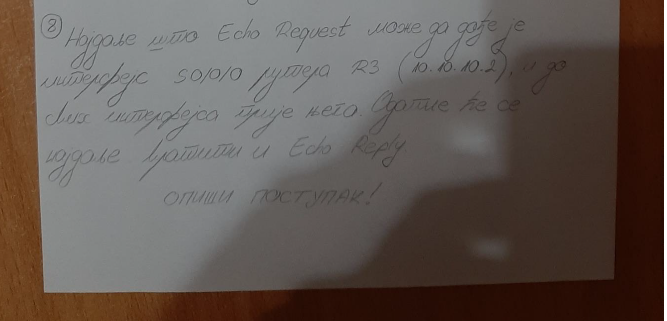 ② Најдаље што Echo Request може да дође је
интерфејс S0/0/0 рутера R3 (10.10.10.2), и до
свих интерфејса прије њега. Одатле ће се
најдаље вратити и Echo Reply
ОПИШИ ПОСТУПАК!